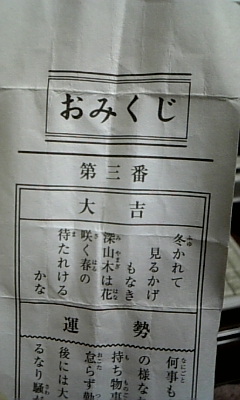 おみくじ
第三番
大吉
冬かれて
見るかげ
もなき
深山木は花
咲く春の
待たれける
かな
運勢
何事も
の様な
持ち物事
怠らず勤
後には大
るなり騒